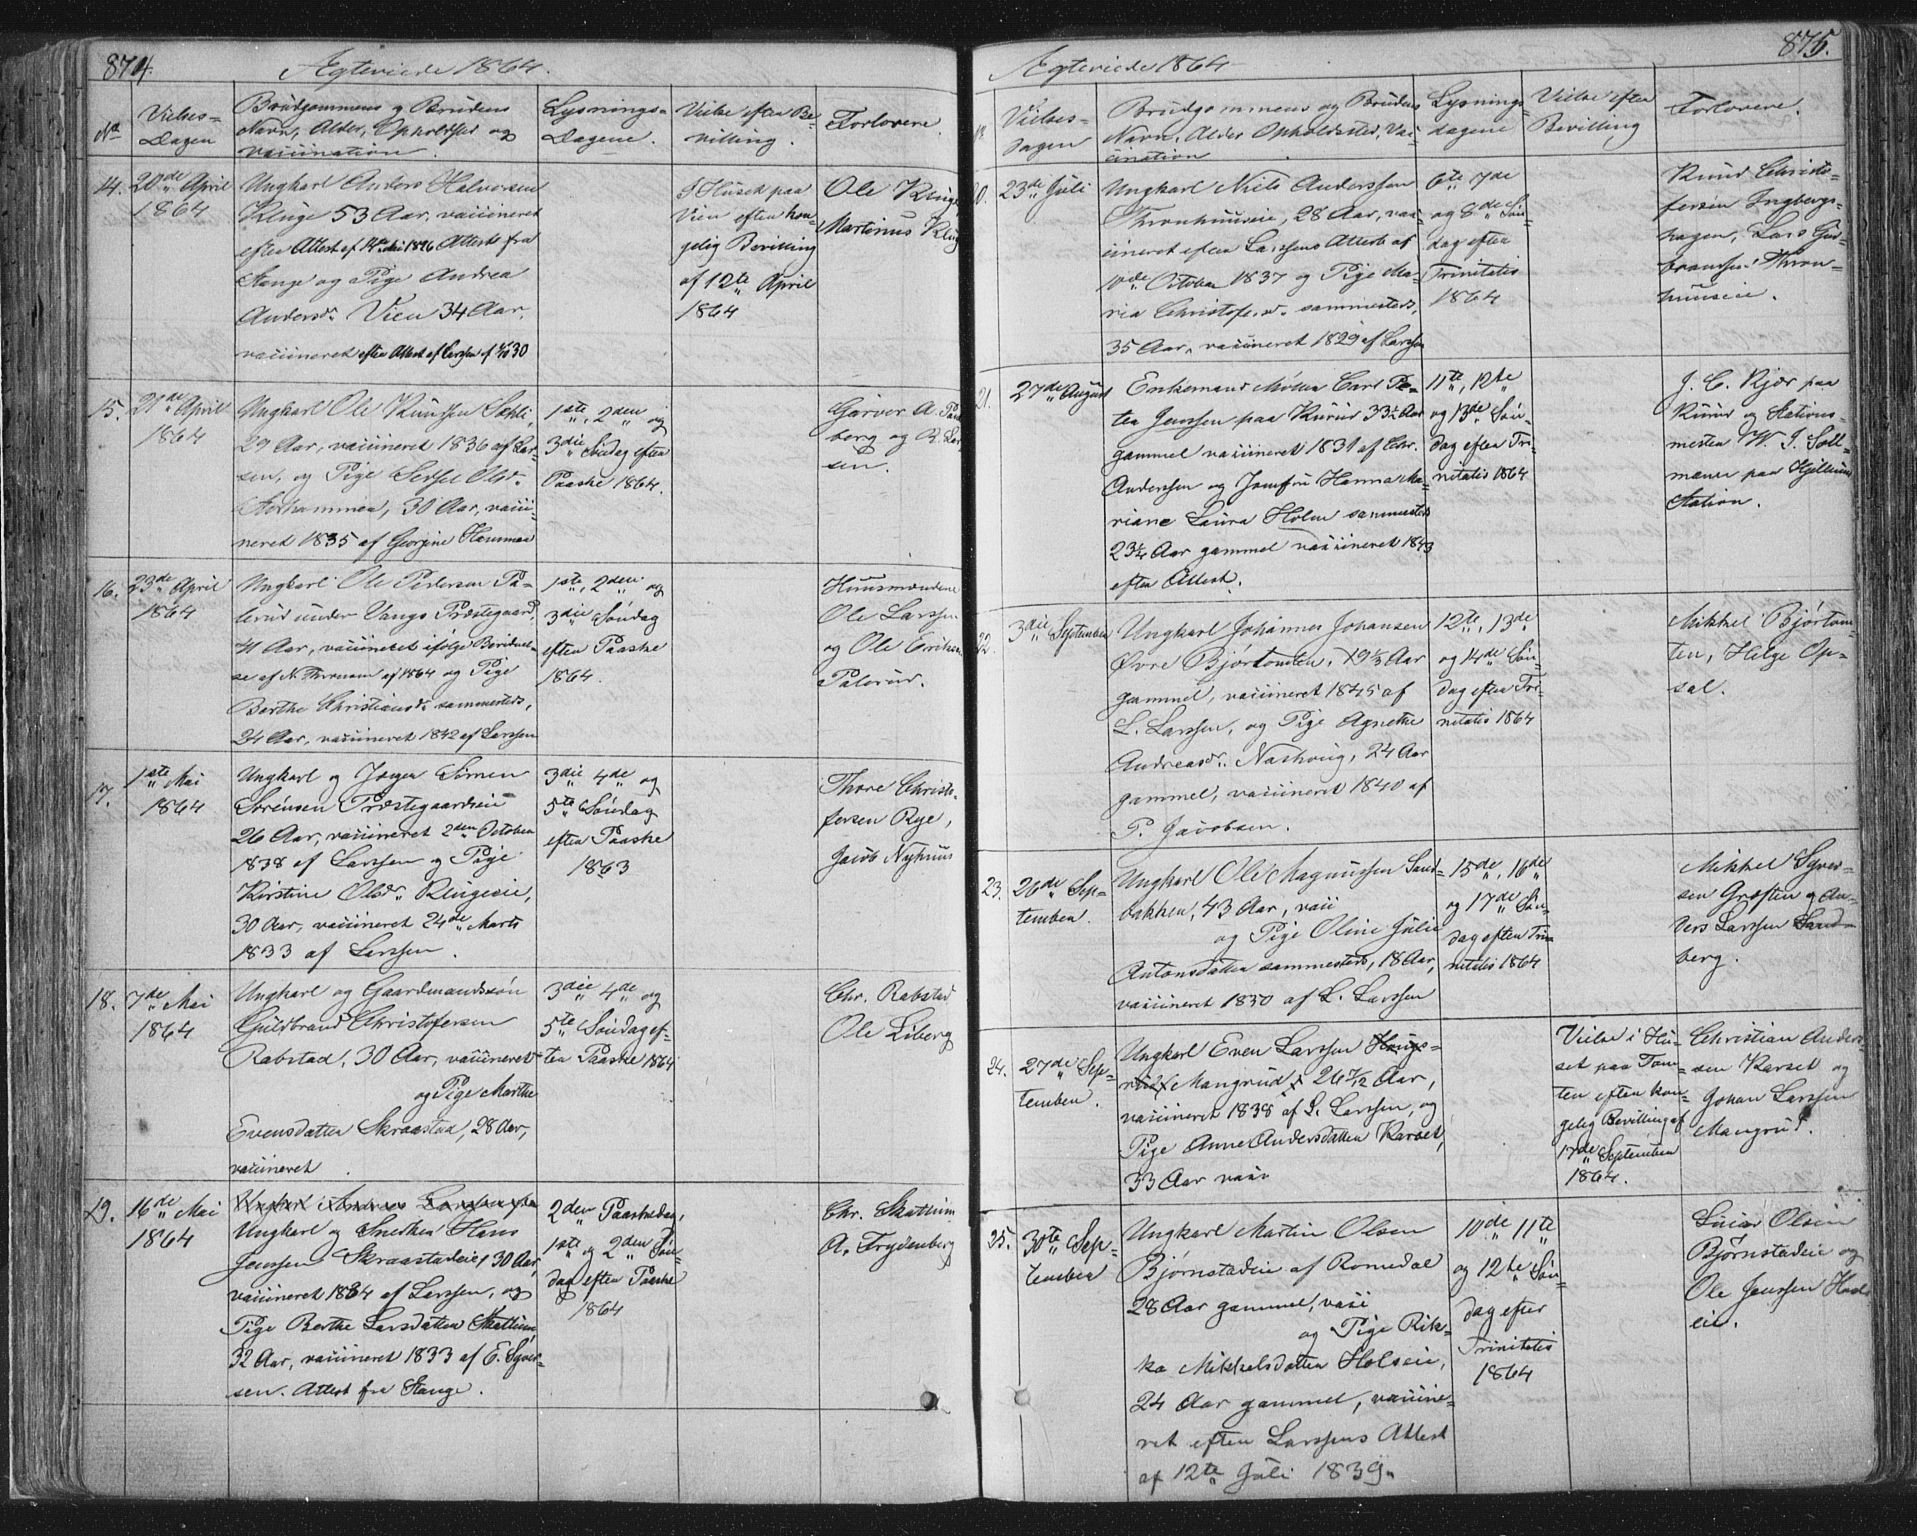 874.
Ægteviede 1864.
No
Vielses-
Dagen
Brudgommens og Brudens
Navn, Alder, Opholdsted og
vaccination.
Lysnings-
Dagene.
Vielse efter Be-
villing.
Forlovere.
14.
20de April
1864
Ungkarl Anders Halvorsen
Kluge 53 Aar, vaccineret
efter Attest af 14de 1826 Attest fra
Stange og Pige Andrea
Andersdr. Vien 34 Aar,
vaccineret efter Attest af Larssen af 30
I Huset paa
Vien efter kon-
gelig Bevilling
af 12te April
1864
Ole Kluge
Martinus Klug
15.
21de April
1864
Ungkarl Ole Knudsen Sahli,
29 Aar, vaccineret 1836 af Lar-
sen, og Pige Sedsel Olsdr.
30 Aar, vacci-
neret 1835 af Georgine Hammer
1ste, 2den og
3die Søndag efter
Paaske 1864.
Garver A.
berg og B. Lar-
sen.
16.
23de April
1864
Ungkarl Ole Pedersen Pa-
lerud under Vangs Præstegaard,
41 Aar, vaccineret ifølge Beviduel-
se af N. Thronsen af 1864 og Pige
Berthe Christiansdr. sammesteds,
24 Aar, vaccineret 1842 af Larssen
1ste, 2den og
3die Søndag
efter Paaske
1864.
Huusmændene
Ole Larssen
og Ole Eriksen
Palerud.
17.
1ste Mai
1864
Ungkarl og Jæger Simen
Sørensen Præstegaardseie
26 Aar, vaccineret 2den October
1838 af Larssen og Pige
Kirstine Olsdr. Klugeeie,
30 Aar, vaccineret 24de Marts
1833 af Larssen.
3die 4de og
5te Søndag
efter Paaske
1863
Thore Christo-
fersen Rye,
Jacob Nyhuus
18.
7de Mai
1864
Ungkarl og Gaardmandssøn
Guldbrand Christofersen
Rabstad, 30 Aar, vaccineret
og Pige Marthe
Evensdatter Skraastad, 28 Aar,
vaccineret
3die 4de og
5te Søndag ef-
ter Paaske 1864
Chr. Rabstad
Ole Liberg
19.
16de Mai
1864
Ungkarl Andreas Larssen
Ungkarl og Snedker Hans
Jenssen Skraastadeie, 30 Aar,
vaccineret 1834 af Larssen, og
Pige Berthe Larsdatter Skattum,
32 Aar, vaccineret 1833 af E. Syver-
sen. Attest fra Stange.
2den Paaskedag,
1ste og 2den Søn-
dag efter Paaske
1864
Chr. Skattum
A. Frydenberg
875.
Ægteviede 1864
No
Vielses-
dagen
Brudgommens og Brudens
Navn, Alder Opholdsted, Vac-
cination
Lysnings-
dagene
Vielse efter
Bevilling
Forlovere.
20.
23de Juli
Ungkarl Nils Anderssen
Thronhuuseie, 28 Aar, vac-
cineret efter Larssens Attest af
10de October 1837 og Pige Ma-
ria Christofersdr. sammesteds,
35 Aar, vaccineret 1829 af Larssen
6te 7de
og 8de Søn-
dag efter
Trinitatis
1864
Knud Christo-
fersen Ingbergs-
hagen, Lars Gul-
brandsen Thron-
huuseie.
21.
27de August
Enkemand Møller Carl Pe-
ter Jenssen paa Kurud 33 1/2 Aar
gammel vaccineret 1831 af Chr.
Anderssen og Jomfru Hanna Ma-
riane Laura Holm sammesteds
23 1/4 Aar gammel vaccineret 1843
efter Attest.
11te, 12te
og 13de Søn-
dag efter Tri-
nitatis 1864
J. C. Kjør paa
Kurud og Stations-
mester W. J. Soll-
mann paa Hjellum
Station.
22.
3die September
Ungkarl Johannes Johansen
Øvre Bjørtomten, 19 1/3 Aar
gammel, vaccineret 1845 af
L. Larssen, og Pige Agnethe
Andreasdr. Nashoug, 24 Aar
gammel, vaccineret 1840 af
P. Jacobsen.
12te, 13de
og 14de Søn-
dag efter Tri-
nitatis 1864
Mikkel Bjørtom-
ten, Helge Op-
sal.
23.
26de Sep-
tember.
Ungkarl Ole Magnussen Sand-
bakken, 43 Aar, vacc
og Pige Oline Julie
Antonsdatter sammesteds, 18 Aar,
vaccineret 1850 af L. Larssen
15de, 16de
og 17de Søn-
dag efter Tri-
nitatis 1864
Mikkel Syver-
sen Grøften og An-
ders Larssen Sand-
berg.
24.
27de Sep-
tember.
Ungkarl Even Larssen Hougs-
rud Mangrud 26 7/12 Aar,
vaccineret 1838 af L. Larssen, og
Pige Anne Andersdatter Karset,
33 Aar vacc
Vielse i Hu-
set paa Tom-
ten efter kon-
gelig Bevilling af
17de September
1864.
Christian Anders-
sen Karset og
Johan Larssen
Mangrud.
25.
30te Sep-
tember
Ungkarl Martin Olsen
Bjørnstadeie af Romedal
28 Aar gammel, vacc
og Pige Rik-
ka Mikkelsdatter Holseie,
24 Aar gammel, vaccine-
ret efter Larssens Attest
af 12te Juli 1839.
10de 11te
og 12te Søn-
dag efter
Trinitatis
1864
Olsen
Bjørnstadeie og
Ole Jenssen Hols-
eie.